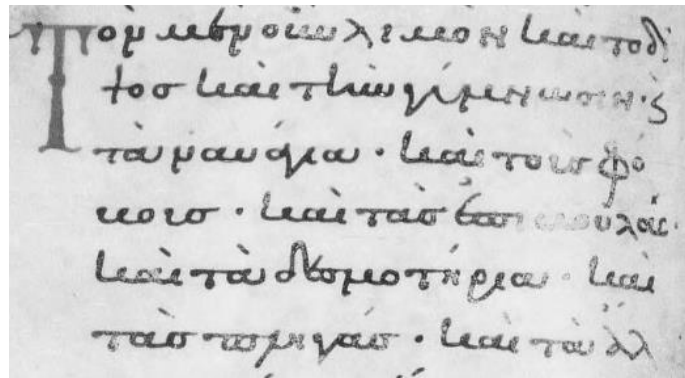 Τὸν μὲν οὖν λιμὸν καὶ τὸ δί
ψος καὶ τὴν γύμνωσιν· ϛ
τὰ ναυάγια· καὶ τοὺς φό
νους· καὶ τὰς ἐπιβουλάς·
καὶ τὰ δεσμοτήρια· καὶ
τὰς πληγάς· καὶ τὰ ἄλ